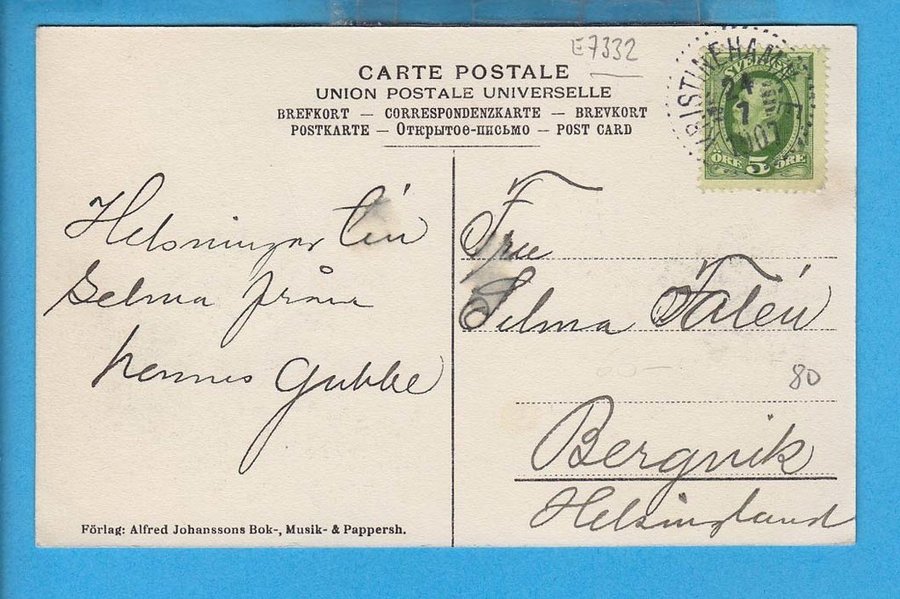 E7332
CARTE POSTALE
UNION POSTALE UNIVERSELLE
BREFKORT — CORRESPONDENZKARTE — BREVKORT
POSTKARTE — Открытое-письмо — POST CARD
KRISTINEHAMN
24
1
1907
SVERIGE
ÖRE 5 ÖRE
Helsningar
Selma från
hennes Gubbe
Fru
Selma Falén
80
Bergvik
Helsingland
Förlag: Alfred Johanssons Bok-, Musik- & Pappersh.